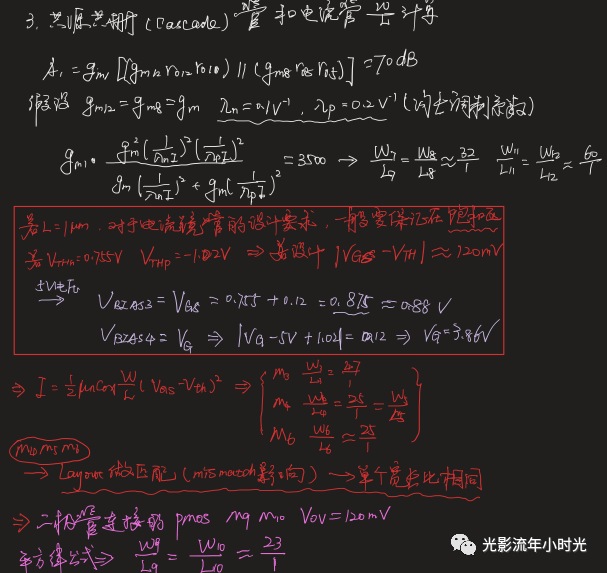 3. 共源共栅(Cascade)管和电流管 W/L 计算
A₁ = gm₁[(gm₁₂ro₁₂ro₁₀) // (gm₈ro₈ro₅)] = 70dB
假设 gm₁₂ = gm₈ = gm λn = 0.1V⁻¹, λp = 0.2V⁻¹ (沟道调制系数)
gm₁ · gm²(1/λnI)²(1/λpI)² / gm(1/λnI)² + gm(1/λpI)² = 3500 → W₇/L₇ = W₈/L₈ ≈ 32/1 W₁₁/L₁₁ = W₁₂/L₁₂ ≈ 60/1
若L=1μm. 对于电流镜管的设计要求, 一般要保证在饱和区
若 VTHn = 0.755V VTHp = -1.02V ⇒ 若设计 |VGS - VTH| ≈ 120mV
5V电压 → VBIAS3 = VGS = 0.755 + 0.12 = 0.875 ≈ 0.88 V
VBIAS4 = VG ⇒ |VG - 5V + 1.02| = 0.12 ⇒ VG = 3.86V
⇒ I = 1/2 μnCox W/L (VGS - Vth)² ⇒ { M₃ W₃/L₃ = 27/1
M₄ W₄/L₄ = 25/1 = W₅/L₅
M₆ W₆/L₆ ≈ 25/1 }
M₄ M₅ M₆
→ Layout 做匹配 (mismatch影响) → 单个宽长比相同
⇒ 二极管连接的 pmos M₉ M₁₀ VOV = 120mV
平方律公式 ⇒ W₉/L₉ = W₁₀/L₁₀ ≈ 23/1
光影流年小时光